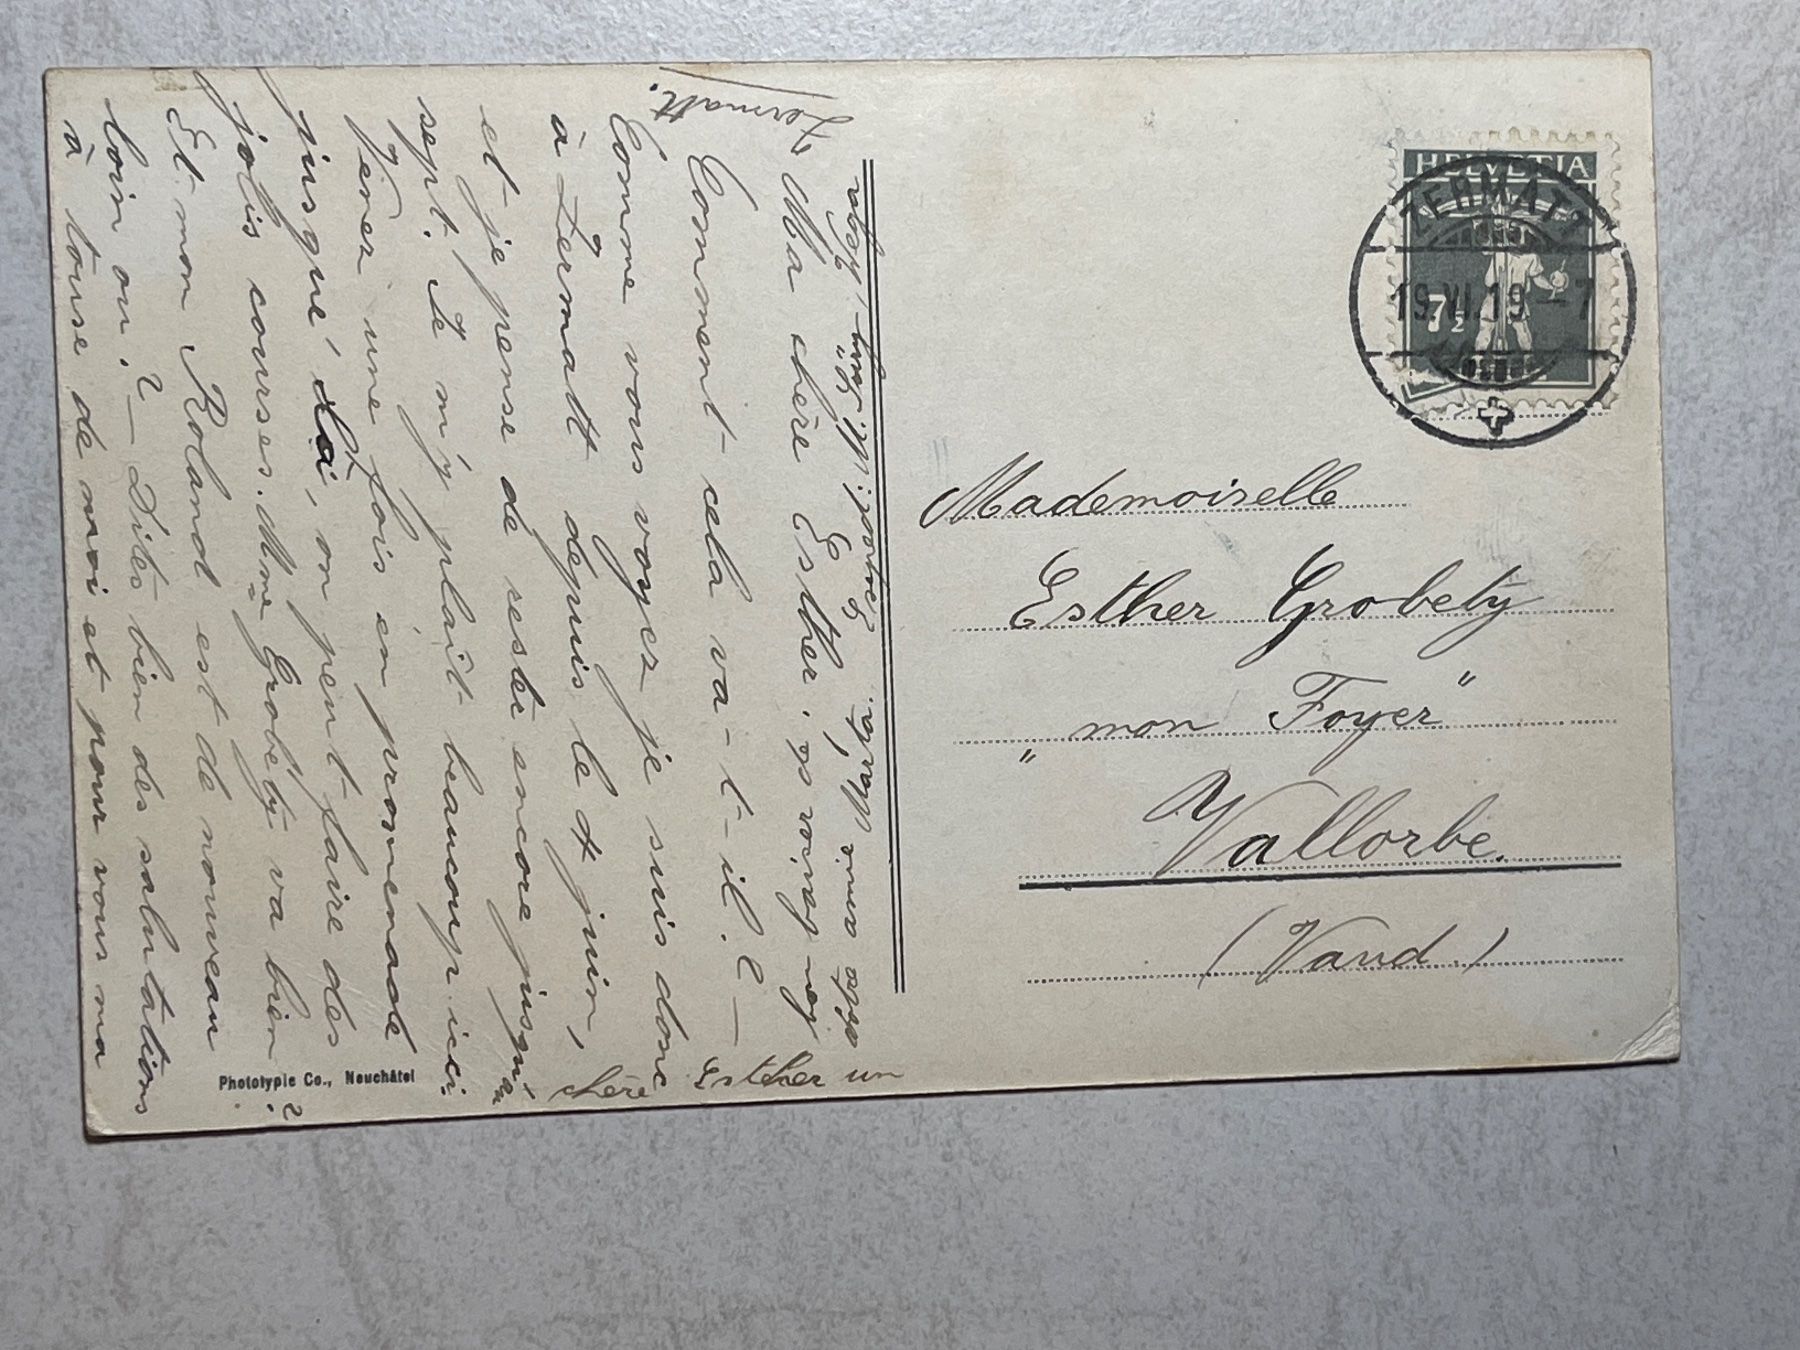 Zermatt.
Ma chère Esther,
Comment cela va-t-il? —
Comme vous voyez je suis donc
à Zermatt depuis le 4 juin,
et je pense de rester encore jusqu'en
sept. Je m'y plaît beaucoup ici.
Vener une fois en promenade
jusque' là, on peut faire des
jolis courses. Mme Grobéty va bien?
Et mon Roland est de nouveau
loin ou? — Dites bien des salutations
à tourse de moi et pour vous ma
chère Esther un
Marthy.
HELVETIA
7½
ZERMATT
19.VI.19 – 7
Mademoiselle
Esther Grobety
"mon Foyer"
Vallorbe.
(Vaud.)
Phototypie Co., Neuchâtel